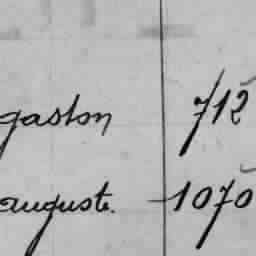 gaston 712
auguste. 1070